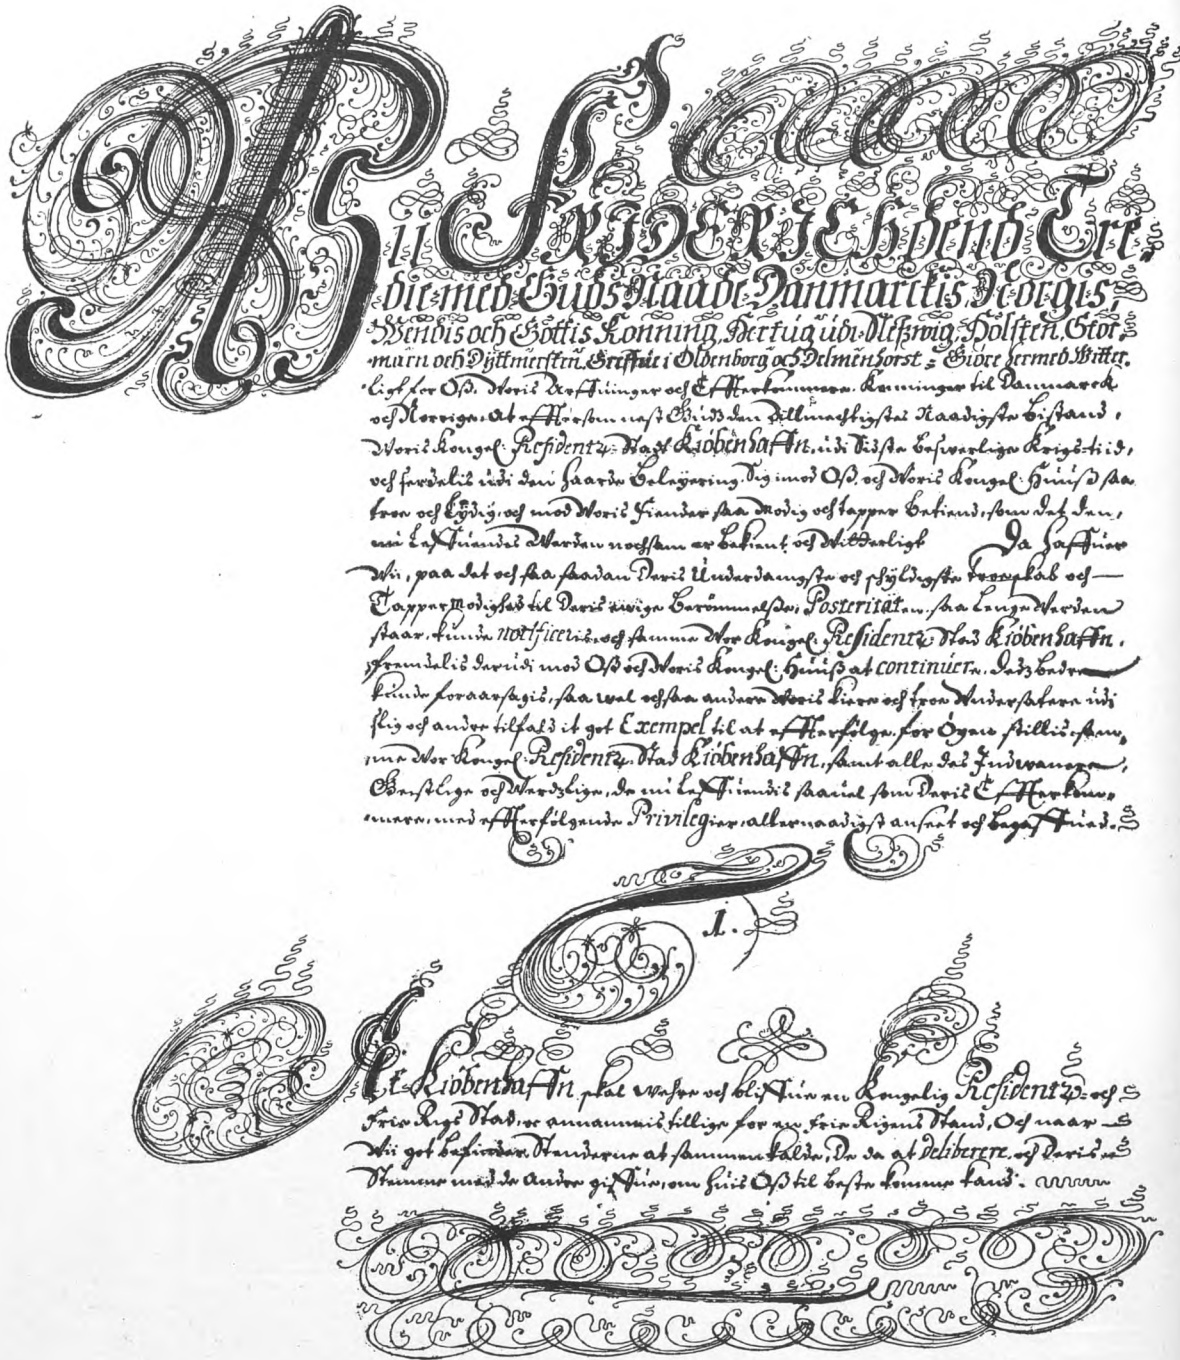 Wii FRIDERICH dend Tre-
die med Guds Naade Danmarckis, Norgis,
Wendis och Gottis Konning, Hertug udi Sleßwig, Holsten, Stor-
marn och Dyttmersken, Greffue i Oldenborg och Delmenhorst, Giøre hermed Witter-
ligt for Oß, Woris Arffuinger och Effterkommere Konninger til Danmarck
och Norrige, At effttersom nest Guds den Allmechtigstes Naadigste bistand,
Woris Kongel: Residentz-Stad Kiøbenhaffn, udi Sidste beswerlige Krigs-tiid,
och serdelis udi den haarde beleyering, Sig imod Oß, och Woris Kongel: Huuß saa
troe och lydig, och mod Woris Fiender saa Modig och tapper beteend, som det den,
nu leffuendes Werden nochsom er bekient och Witterligt Da haffuer
Wii, paa det och saa saadan deris Underdanigste och schyldigste troeskab och
Tappermodighed til deris ewige berømmelße, Posteriteten, saa lenge Werden
staar, kunde notificeris, och samme Wor Kongel: Residentz Stad Kiøbenhaffn,
fremdelis derudi mod Oß och Woris Kongel: Huuß at continuere, deds bedre
kunde foraarsagis, saa wel ochsaa andere Woris kiere och troe Undersatere udi
slig och andre tilfald it got Exempel til at effterfølge, for Øyen stillis, sam-
me Wor Kongel: Residentz Stad Kiøbenhaffn, samt alle des Indwaanere,
Geistlige och Werdslige, de nu leffuendis saauel som deris Effterkom-
mere, med effterfølgende Privilegier, allernaadigst anseet och begaffued.
1.
At Kiøbenhaffn skal wehre och bliffue en Kongelig Residentz- och
Frie Rigs Stad, oc annammis tillige for en Frie Rigens Stand, Och naar
Wii got befinder Stenderne at sammenkalde, De da at deliberere, och deris
Stemme med de Andre giffue, om huis Oß til beste komme kand.